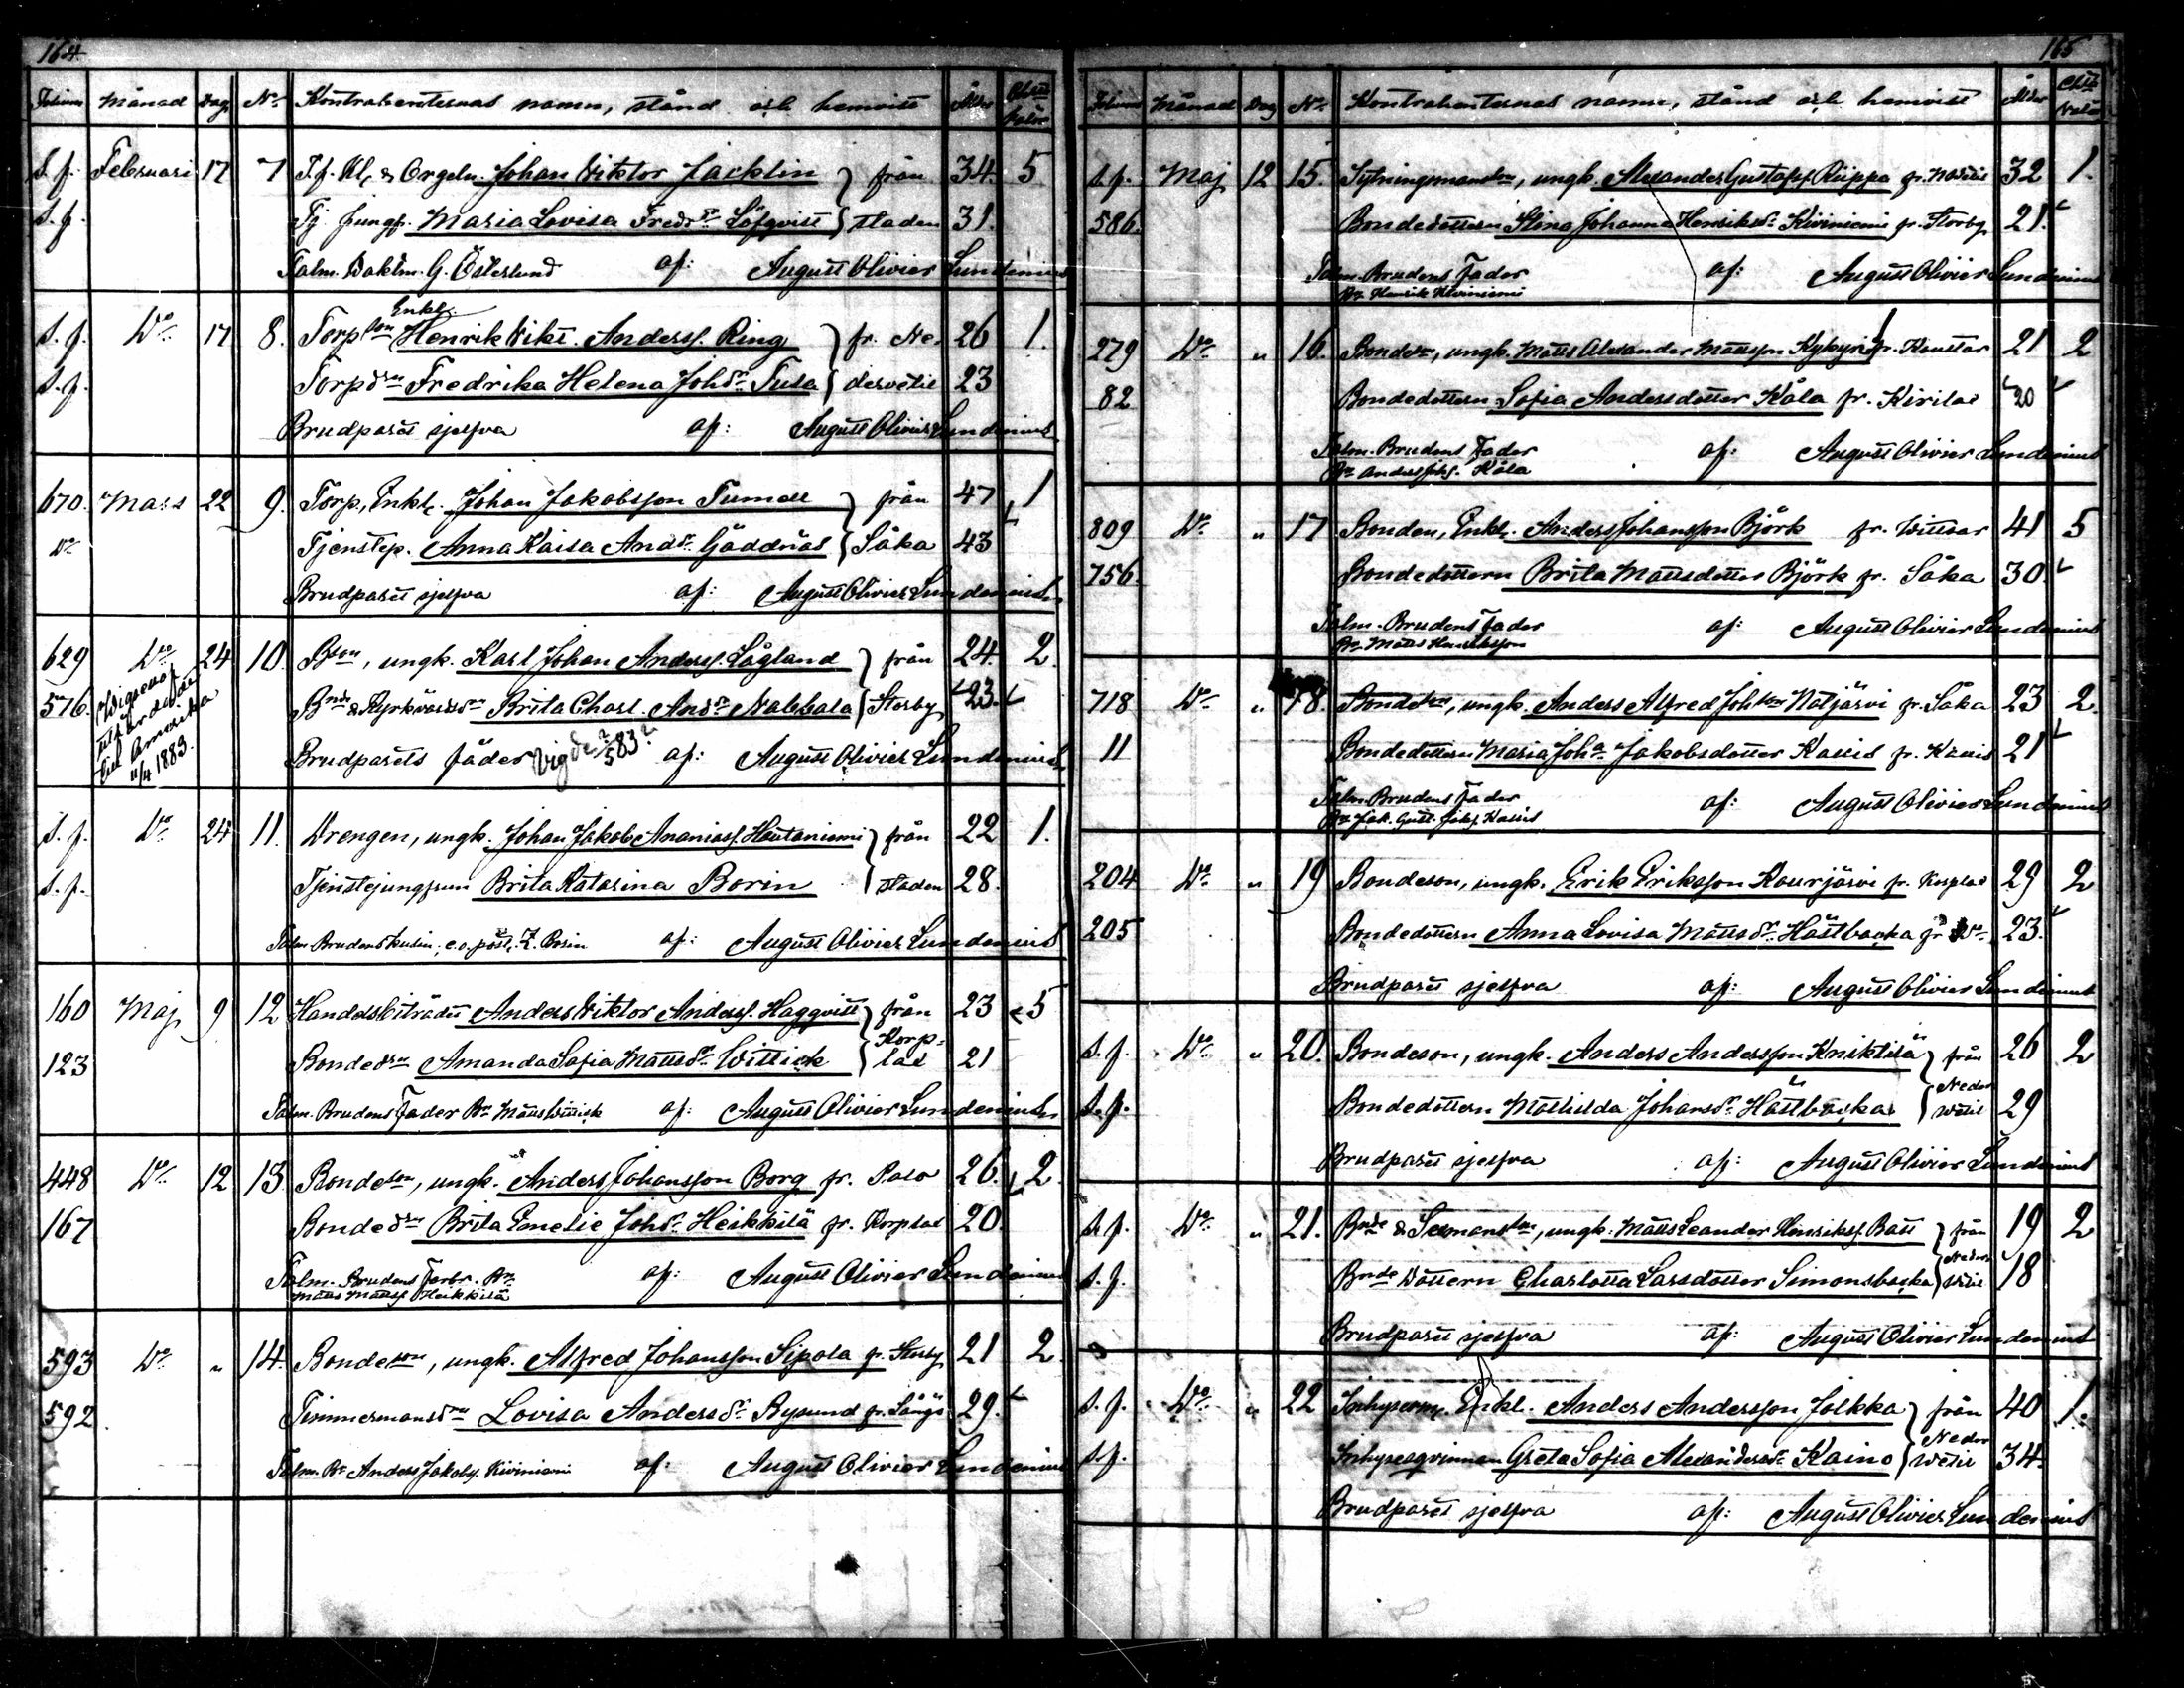 164
Folium Månad Dag No Kontrahenternas namn, stånd och hemvist Ålder
S. f. Februari 17 7 T.f. Kl. & Orgeln. Johan Viktor Jacklin från 34. 5
S. f. Tj. jungf. Maria Lovisa Fredrdr Löfqvist staden 31.
Talm. Vaktm. G. Österlund af: August Olivier Lundenius
Enkl.
S. f. Do 17 8. Torpson Henrik Vikt. Anderss. Ring fr. Ne- 26 1.
S. f. Torpdrn Fredrika Helena Johdr Tusa dervetil 23
Brudparet sjelfva af: August Olivier Lundenius
670. Mars 22 9. Torp., Enkl. Johan Jakobsson Tumall från 47 1
Do Tjenstep. Anna Kaisa Anddr Gäddnäs Såka 43
Brudparet sjelfva af: August Olivier Lundenius
629 Do 24 10. Bson, ungk. Karl Johan Anderss. Lågland från 24. 2.
576. Bnde & Kyrkvärdsdrn Brita Charl. Anddr Nabbala Storby 23.
till Amerika
11/4 1883.
Brudparets fäder Vigde 2/5 83? af: August Olivier Lundenius
S. f. Do 24 11. Drengen, ungk. Johan Jakob Ananiass. Hautaniemi från 22 1.
S. f. Tjenstejungfrun Brita Katarina Borin staden 28.
Talm. Brudens kusin, e.o. post. Z. Borin af: August Olivier Lundenius
160 Maj 9 12 Handelsbiträdet Anders Viktor Anderss. Haggvist från 23 5
123 Bondedrn Amanda Sofia Mattsdr Wittick Korp-lax 21
Talm. Brudens Fader Bn Matts Wittick af: August Olivier Lundenius
448 Do 12 13 Bondeson, ungk. Anders Johansson Borg fr. Palo 26. 2.
167 Bondedrn Brita Emelie Johdr Heikkilä fr. Korplax 20.
Talm. Brudens Farbr. Bn af: August Olivier Lundenius
Matts Mattss. Heikkilä
593 Do " 14. Bondeson, ungk. Alfred Johansson Sipola fr. Storby 21 2.
592 Timmermansdrn Lovisa Andersdr Rysund fr. Långö 29.
Talm. Bn Anders Jakobs. Kiviniemi af: August Olivier Lundenius
165
Folium Månad Dag No Kontrahenternas namn, stånd och hemvist Ålder
S. f. Maj 12 15. Sytningsmansson, ungk. Alexander Gustafs. Riippa fr. Nvetil 32 1.
586. Bondedottern Stina Johanna Henriksdr Kiviniemi fr. Storby 21.
Talm. Brudens Fader af: August Olivier Lundenius
Bn Henrik Kiviniemi
279 Do " 16. Bondeson, ungk. Matts Alexander Mattsson Kykyri fr. Kaustar 21 2
82 Bondedottern Sofia Andersdotter Kåla fr. Kirilax 20
Talm. Brudens Fader af: August Olivier Lundenius
Bn Anders Johs. Kåla
809 Do " 17 Bonden, Enkl. Anders Johansson Björk fr. Wittsar 41 5
756. Bondedottern Brita Mattsdotter Björk fr. Såka 30.
Talm. Brudens Fader af: August Olivier Lundenius
Bn Matts Henriksson
718 Do " 18. Bondeson, ungk. Anders Alfred Johson Natjärvi fr. Såka 23 2.
11 Bondedottern Maria Joha Jakobsdotter Kainis fr. Kainis 21
Talm. Brudens Fader af: August Olivier Lundenius
Bn Jak. Gust. Jaks. Kainis
204 Do " 19 Bondeson, ungk. Erik Eriksson Kourjärvi fr. Korplax 29 2
205 Bondedottern Anna Lovisa Mattsdr Hästbacka fr Do 23.
Brudparet sjelfva af: August Olivier Lundenius
S. f. Do " 20. Bondeson, ungk. Anders Andersson Kniktilä från 26 2
S. f. Bondedottern Mathilda Johansdr Hästbacka Neder wetil 29
Brudparet sjelfva af: August Olivier Lundenius
S. f. Do " 21. Bnde & Sexmansson, ungk. Matts Leander Henrikss. Bast från 19 2
S. f. Bnde Dottern Charlotta Larsdotter Simonsbacka Neder wetil 18
Brudparet sjelfva af: August Olivier Lundenius
S. f. Do " 22 Inhysesm. Enkl. Anders Andersson Jolkka från 40 1.
S. f. Inhysesqvinnan Greta Sofia Alexandersdr Kaino Neder wetil 34.
Brudparet sjelfva af: August Olivier Lundenius